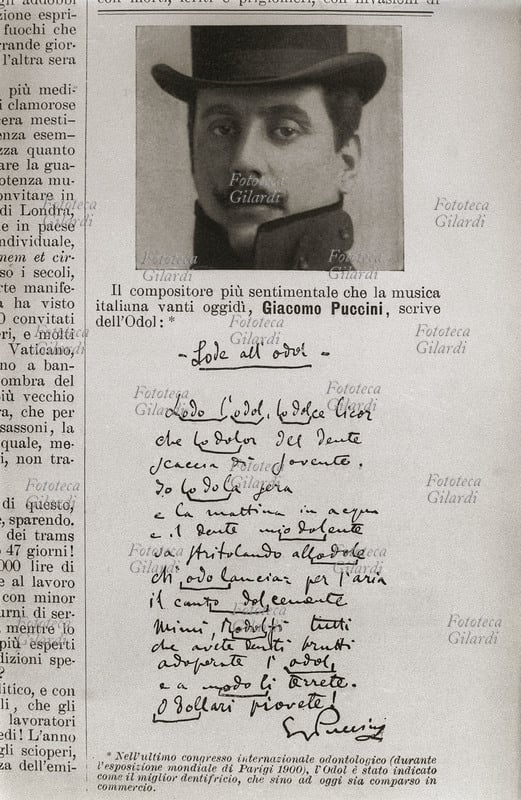 gli addobbi
zione espri-
fuochi che
rande gior-
l'altra sera
più medi-
i clamorose
cera mesti-
enza esem-
zza quanto
are la gua-
otenza mu-
onvitare in
di Londra,
e in paese
ndividuale,
nem et cir-
so i secoli,
rte manife-
a ha visto
0 convitati
eri, e molti
Vaticano,
no a ban-
ombra del
iù vecchio
ra, che per
sassoni, la
quale, me-
i, non tra-
di questo,
e, sparendo.
dei trams
47 giorni!
000 lire di
e al lavoro
con minor
urni di ser-
mentre lo
più esperti
dizioni spe-
?
litico, e con
li, che gli
lavoratori
edi! L'anno
gli scioperi,
za dell'emi-
con morti, feriti e prigionieri, con invasioni di
Il compositore più sentimentale che la musica
italiana vanti oggidì, Giacomo Puccini, scrive
dell'Odol: *
- Lode all'odol -
Lodo l'odol, lo dolce licor
che lo dolor del dente
scaccia di sovente.
Io lo dola sera
e la mattina in acqua
e il dente mio dolente
va stritolando allodole
ch'odo lanciar per l'aria
il canto dolcemente
Mimì, Rodolfi tutti
che avete denti brutti
adoperate l'odol,
e a modo li terrete.
O dollari piovete!
G. Puccini
* Nell'ultimo congresso internazionale odontologico (durante
l'esposizione mondiale di Parigi 1900), l'Odol è stato indicato
come il miglior dentifricio, che sino ad oggi sia comparso in
commercio.
Fototeca
Gilardi